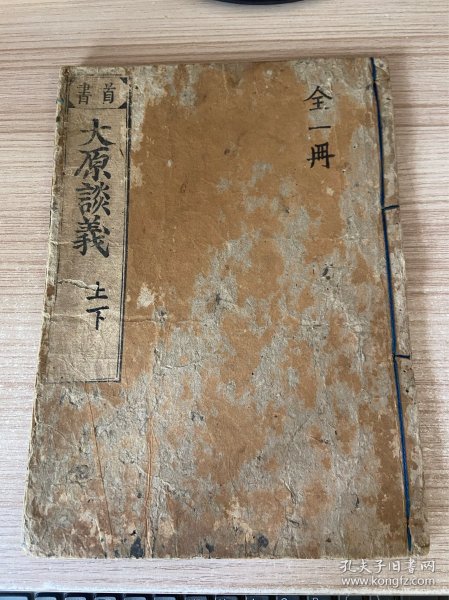 首書
大原談義
上下
全一冊
孔夫子旧书网
www.kongfz.com